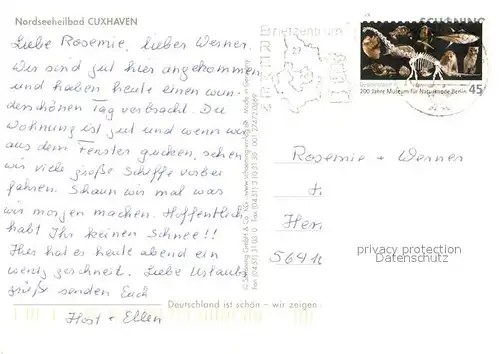 Nordseeheilbad CUXHAVEN
Liebe Rosemie, lieber Werner.
Wir sind gut hier angekommen
und haben heute einen wun-
derschönen Tag verbracht. Die
Wohnung ist gut und wenn wir
aus dem Fenster gucken, sehen
wir viele große Schiffe vorbei
fahren. Schaun wir mal was
wir morgen machen. Hoffentlich
habt Ihr keinen Schnee!!
Hier hat es heute abend ein
wenig geschneit. Liebe Urlaubs
grüße senden Euch
Host + Ellen
Deutschland ist schön – wir zeigen
SCHÖNING
200 Jahre Museum für Naturkunde Berlin
45
Briefzentrum
Rosemie + Werner
Her
56410
privacy protection
Datenschutz